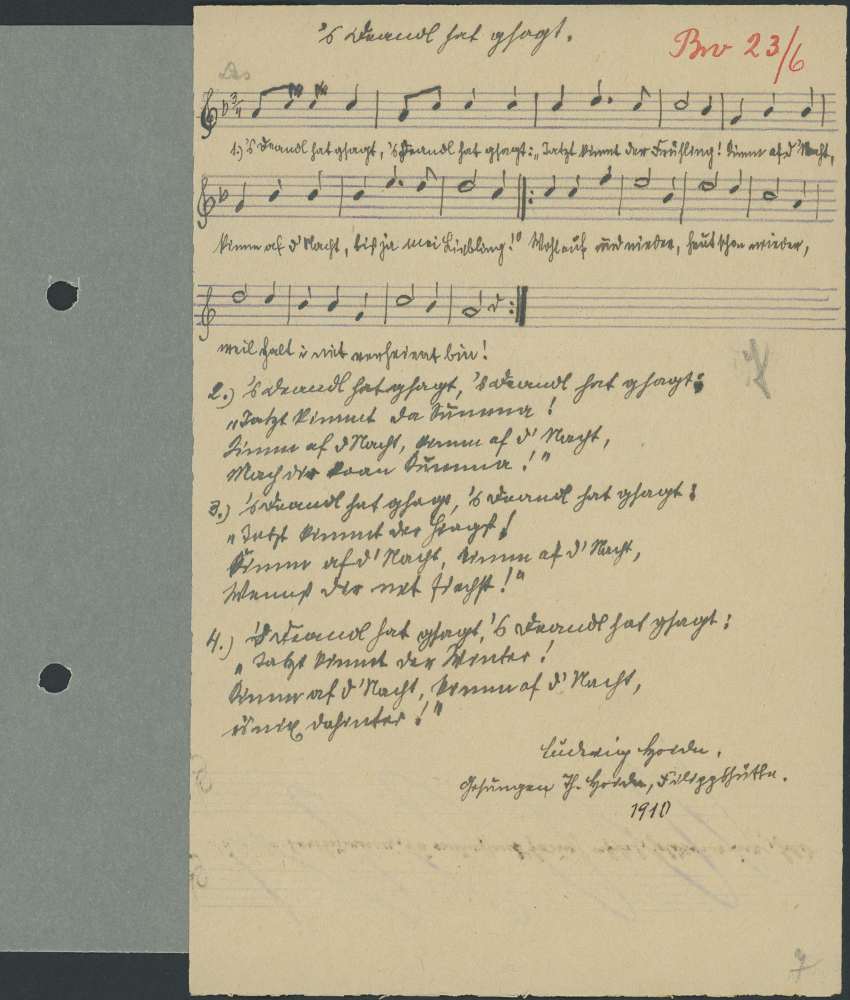 's Deandl hat gsagt.
Bw 23/6
Des
3/4
1.) 's Deandl hat gsagt, 's Deandl hat gsagt: „Jatzt kimmt der Frühling! Kimm af d' Nacht,
kimm af d' Nacht, bist ja mei Liebling!" Wohl auf und nieder, heut schon wieder,
weil halt i nit verheirat bin!
2.) 's Deandl hat gsagt, 's Deandl hat gsagt:
„Jatzt kimmt da Summa!
Kimm af d' Nacht, kimm af d' Nacht,
Mach dir koan Kumma!"
3.) 's Deandl hat gsagt, 's Deandl hat gsagt:
„Jatzt kimmt der
Kimm af d' Nacht, kimm af d' Nacht,
Wennst die net
4.) 's Deandl hat gsagt, 's Deandl hat gsagt:
„Jatzt kimmt der Winter!
Kimm af d' Nacht, kimm af d' Nacht,
is nix dahinter!"
Ludwig
Gesungen Th.
1910
7
7